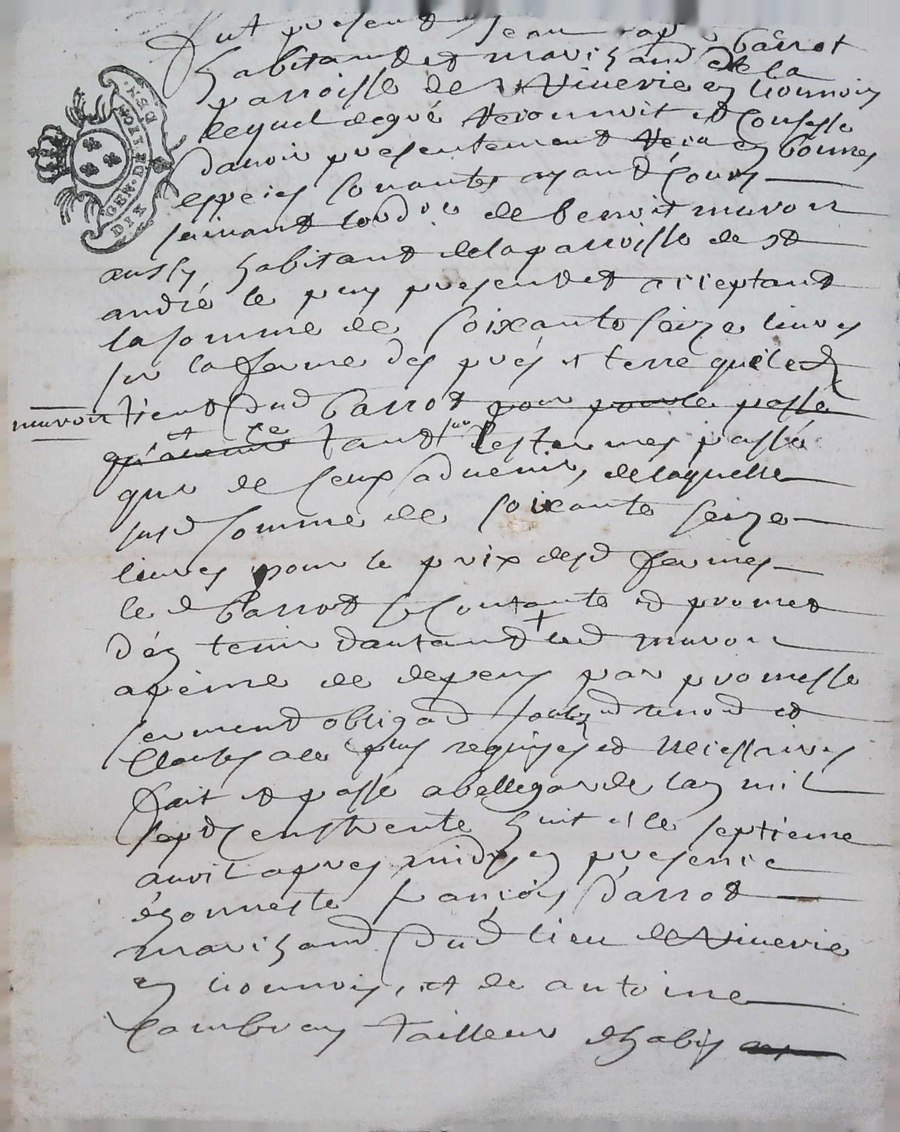 GEN. DE LYON
DIX DEN.
Fut present Jean Barrot
habitant et marchand de la
parroisse de Viverie en lionnois
lequel de gré reconnoit et confesse
davoir presentement receu en bonnes
especies sonantes ayant cours
suivant lordre de benoit mavoir
aussy habitant de la parroisse de st
andré le puy present et acceptant
la somme de soixante seize livres
sur la ferme des prés et terre quil led
mavoir tient dud Barrot pour passé
et ce tant sur les termes passé
que de ceux advenir, de laquelle
susd somme de soixante seize
livres pour le prix desd fermes
le d Barrot se contante et promet
d'en tenir d'autant led mavoir
a peine de depens par promesse
serment obligaon soubz et renon et
clauses a ce plus requises et necessaires
fait et passé a bellegarde lan mil
sept cens trente huit et le septieme
avril apres midy en presence
d'honneste françois Barrot
marchand dud lieu de Viverie
en lionnois, et de antoine
tailleur d'habis